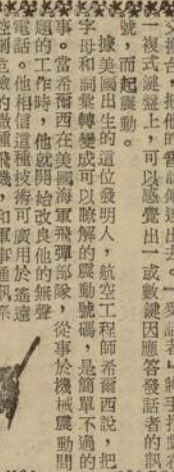 一複式鍵盤上，可以感覺出一或數鍵因應答發話者的訊
號，而起震動。
據美國出生的這位發明人，航空工程師希爾西說，把
字母和詞彙轉變成可以瞭解的震動號碼，是簡單不過的
事。當希爾西在美國海軍飛彈部隊，從事於機械震動問
題的工作時，他就開始改良他的無聲
電話。他相信這種技術可廣用於遙遠